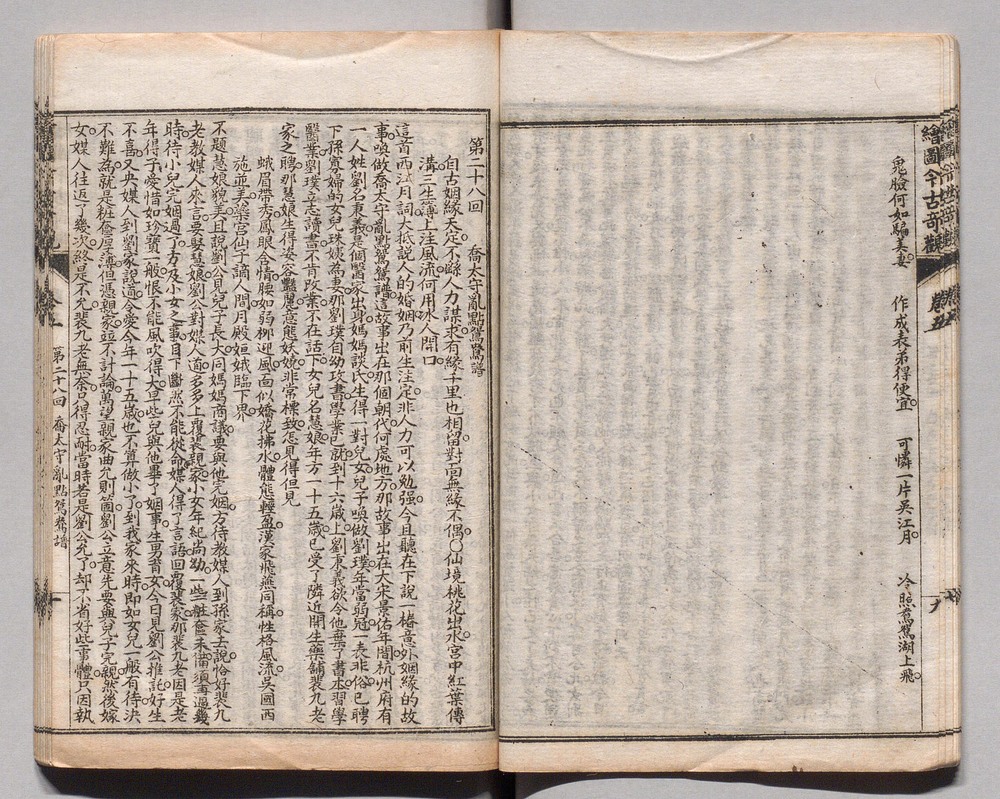 繪圖今古奇觀 卷五
鬼臉何如騙美妻。 作成表弟得便宜。 可憐一片吳江月。 冷照鴛鴦湖上飛。
第二十八回 喬太守亂點鴛鴦譜
自古姻緣天定。不繇人力謀求。有緣千里也相留。對面無緣不偶。〇仙境桃花出水。宮中紅葉傳
溝。三生簿上注風流。何用冰人開口
這首西江月詞。大抵說人的婚姻。乃前生注定。非人力可以勉强。今且聽在下說一樁意外姻緣的故
事。喚做喬太守亂點鴛鴦譜。這故事出在那個朝代。何處地方。那故事出在大宋景佑年間。杭州府有
一人姓劉名秉義。是個醫家出身。媽媽談氏。生得一對兒女。兒子喚做劉璞。年當弱冠。一表非俗。已聘
下孫寡婦的女兒珠姨為妻。那劉璞自幼攻書。學業已就。到十六歲上。劉秉義欲令他棄了書本。習學
醫業。劉璞立志讀書。不肯改業。不在話下。女兒名慧娘。年方一十五歲。已受了隣近開生藥舖裴九老
家之聘。那慧娘生得姿容豔麗。意態妖嬈。非常標致。怎見得。但見
蛾眉帶秀。鳳眼含情。腰如弱柳迎風。面似嬌花拂水。體態輕盈。漢家飛燕同稱。性格風流。吳國西
施並美。蕊宮仙子謫人間。月殿姮娥臨下界
不題慧娘貌美。且說劉公見兒子長大。同媽媽商議。要與他完姻。方待教媒人到孫家去說。恰好裴九
老教媒人來言。要娶慧娘。劉公對媒人道。多多上覆裴親家。小女年紀尚幼。一些粧奩未備。須再過幾
時。待小兒完姻過了。方及小女之事。目下斷然不能從命。媒人得了言語。回覆裴家。那裴九老因是老
年得子。愛惜如珍寶一般。恨不能風吹得大。早些兒與他畢了姻事。生男育女。今日見劉公推託。好生
不喜。又央媒人到劉家說道。令愛今年一十五歲。也不算做小了。到我家來時。即如女兒一般看待。決
不難為。就是粧奩厚薄。但憑親家。並不計論。萬望親家曲允則箇。劉公立意先要與兒子完親。然後嫁
女。媒人往返了幾次。終是不允。裴九老無奈。只得忍耐。當時若是劉公允了。却不省好些事體。只因執
第二十八回 喬太守亂點鴛鴦譜 一